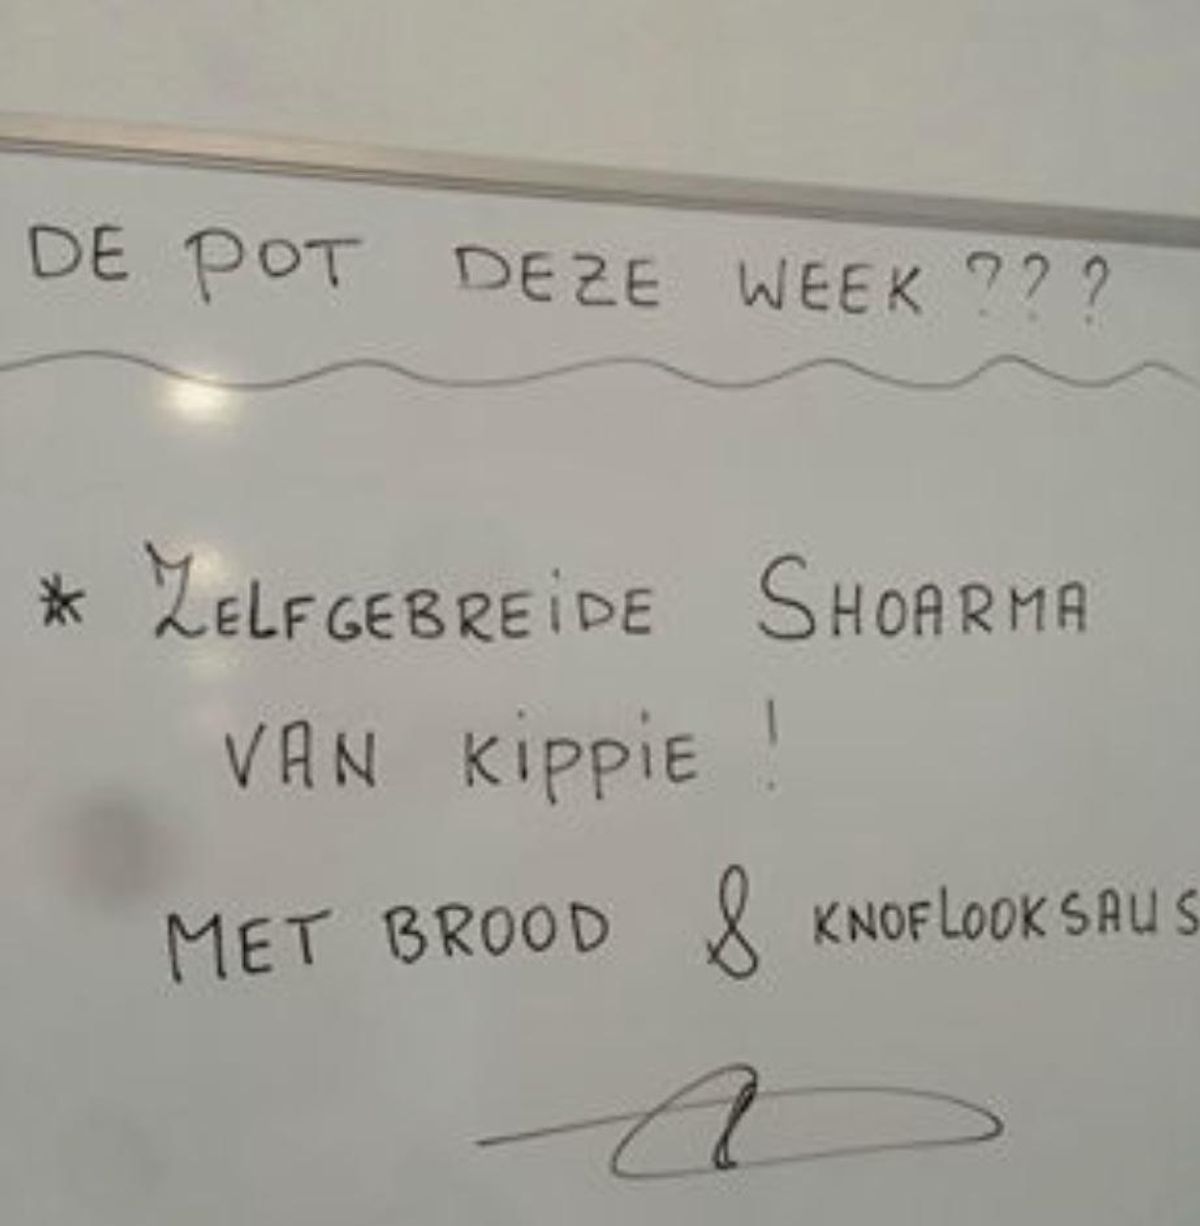 DE POT DEZE WEEK ???
* ZELFGEBREIDE SHOARMA
VAN KIPPIE !
MET BROOD & KNOFLOOKSAUS